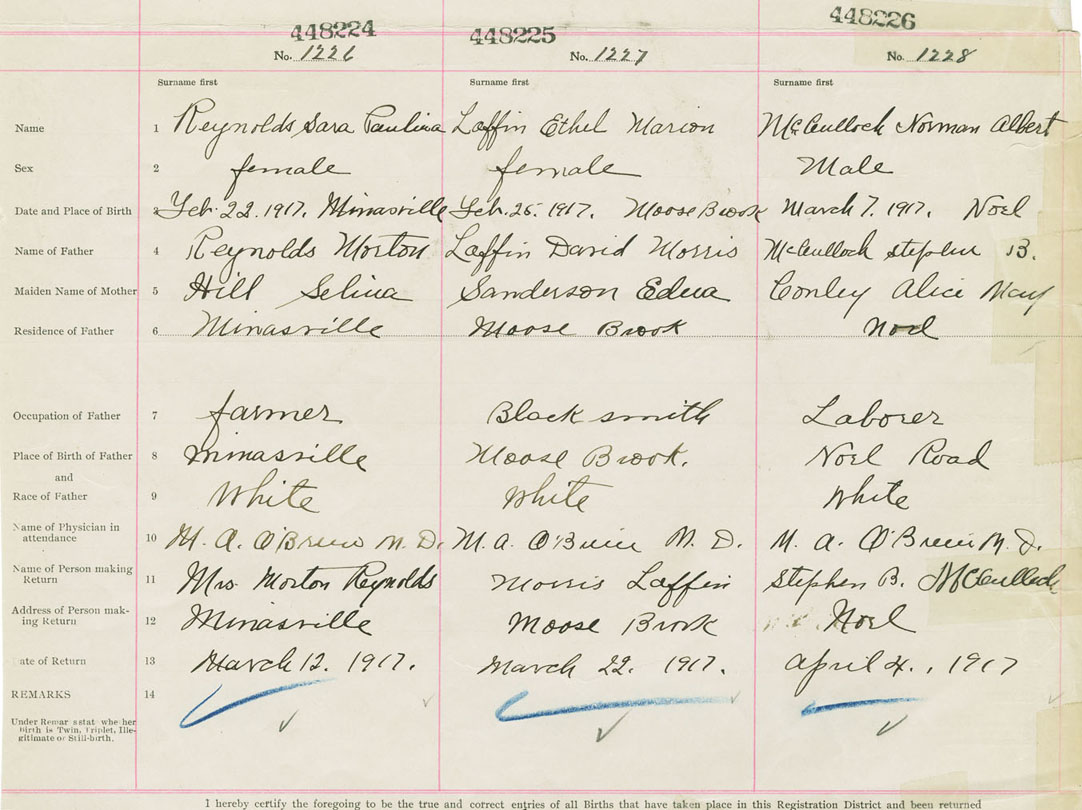 448224 448225 448226
No. 1226 No. 1227 No. 1228
Surname first Surname first Surname first
Name 1 Reynolds Sara Paulina Laffin Ethel Marion McCullock Norman Albert
Sex 2 female female Male
Date and Place of Birth 3 Feb. 22. 1917. Minasville Feb. 25. 1917. Moose Brook March 7. 1917. Noel
Name of Father 4 Reynolds Morton Laffin David Morris McCullock Stephen B.
Maiden Name of Mother 5 Hill Selina Sanderson Edna Conley Alice May
Residence of Father 6 Minasville Moose Brook Noel
Occupation of Father 7 farmer Black smith Laborer
Place of Birth of Father 8 Minasville Moose Brook. Noel Road
and
Race of Father 9 White White White
Name of Physician in
attendance 10 M. A. O'Brien M. D. M. A. O'Brien M. D. M. A. O'Brien M. D.
Name of Person making
Return 11 Mrs Morton Reynolds Morris Laffin Stephen B. McCullock
Address of Person mak-
ing Return 12 Minasville Moose Brook Noel
ate of Return 13 March 12. 1917. March 22. 1917. April 4., 1917
REMARKS 14
Under Remar s stat whe her
Birth is Twin, Triplet, Ille-
gitimate or Still-birth.
I hereby certify the foregoing to be the true and correct entries of all Births that have taken place in this Registration District and been returned